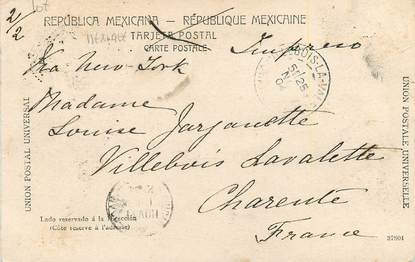 2/2
REPÚBLICA MEXICANA — RÉPUBLIQUE MEXICAINE
TARJETA POSTAL
CARTE POSTALE
Impreso
Via New-York
Madame
Louise Jarzanette
Villebois Lavalette
Charente
France
UNION POSTAL UNIVERSAL
UNION POSTALE UNIVERSELLE
Lado reservado á la dirección
(Côté réservé à l'adresse)
37801